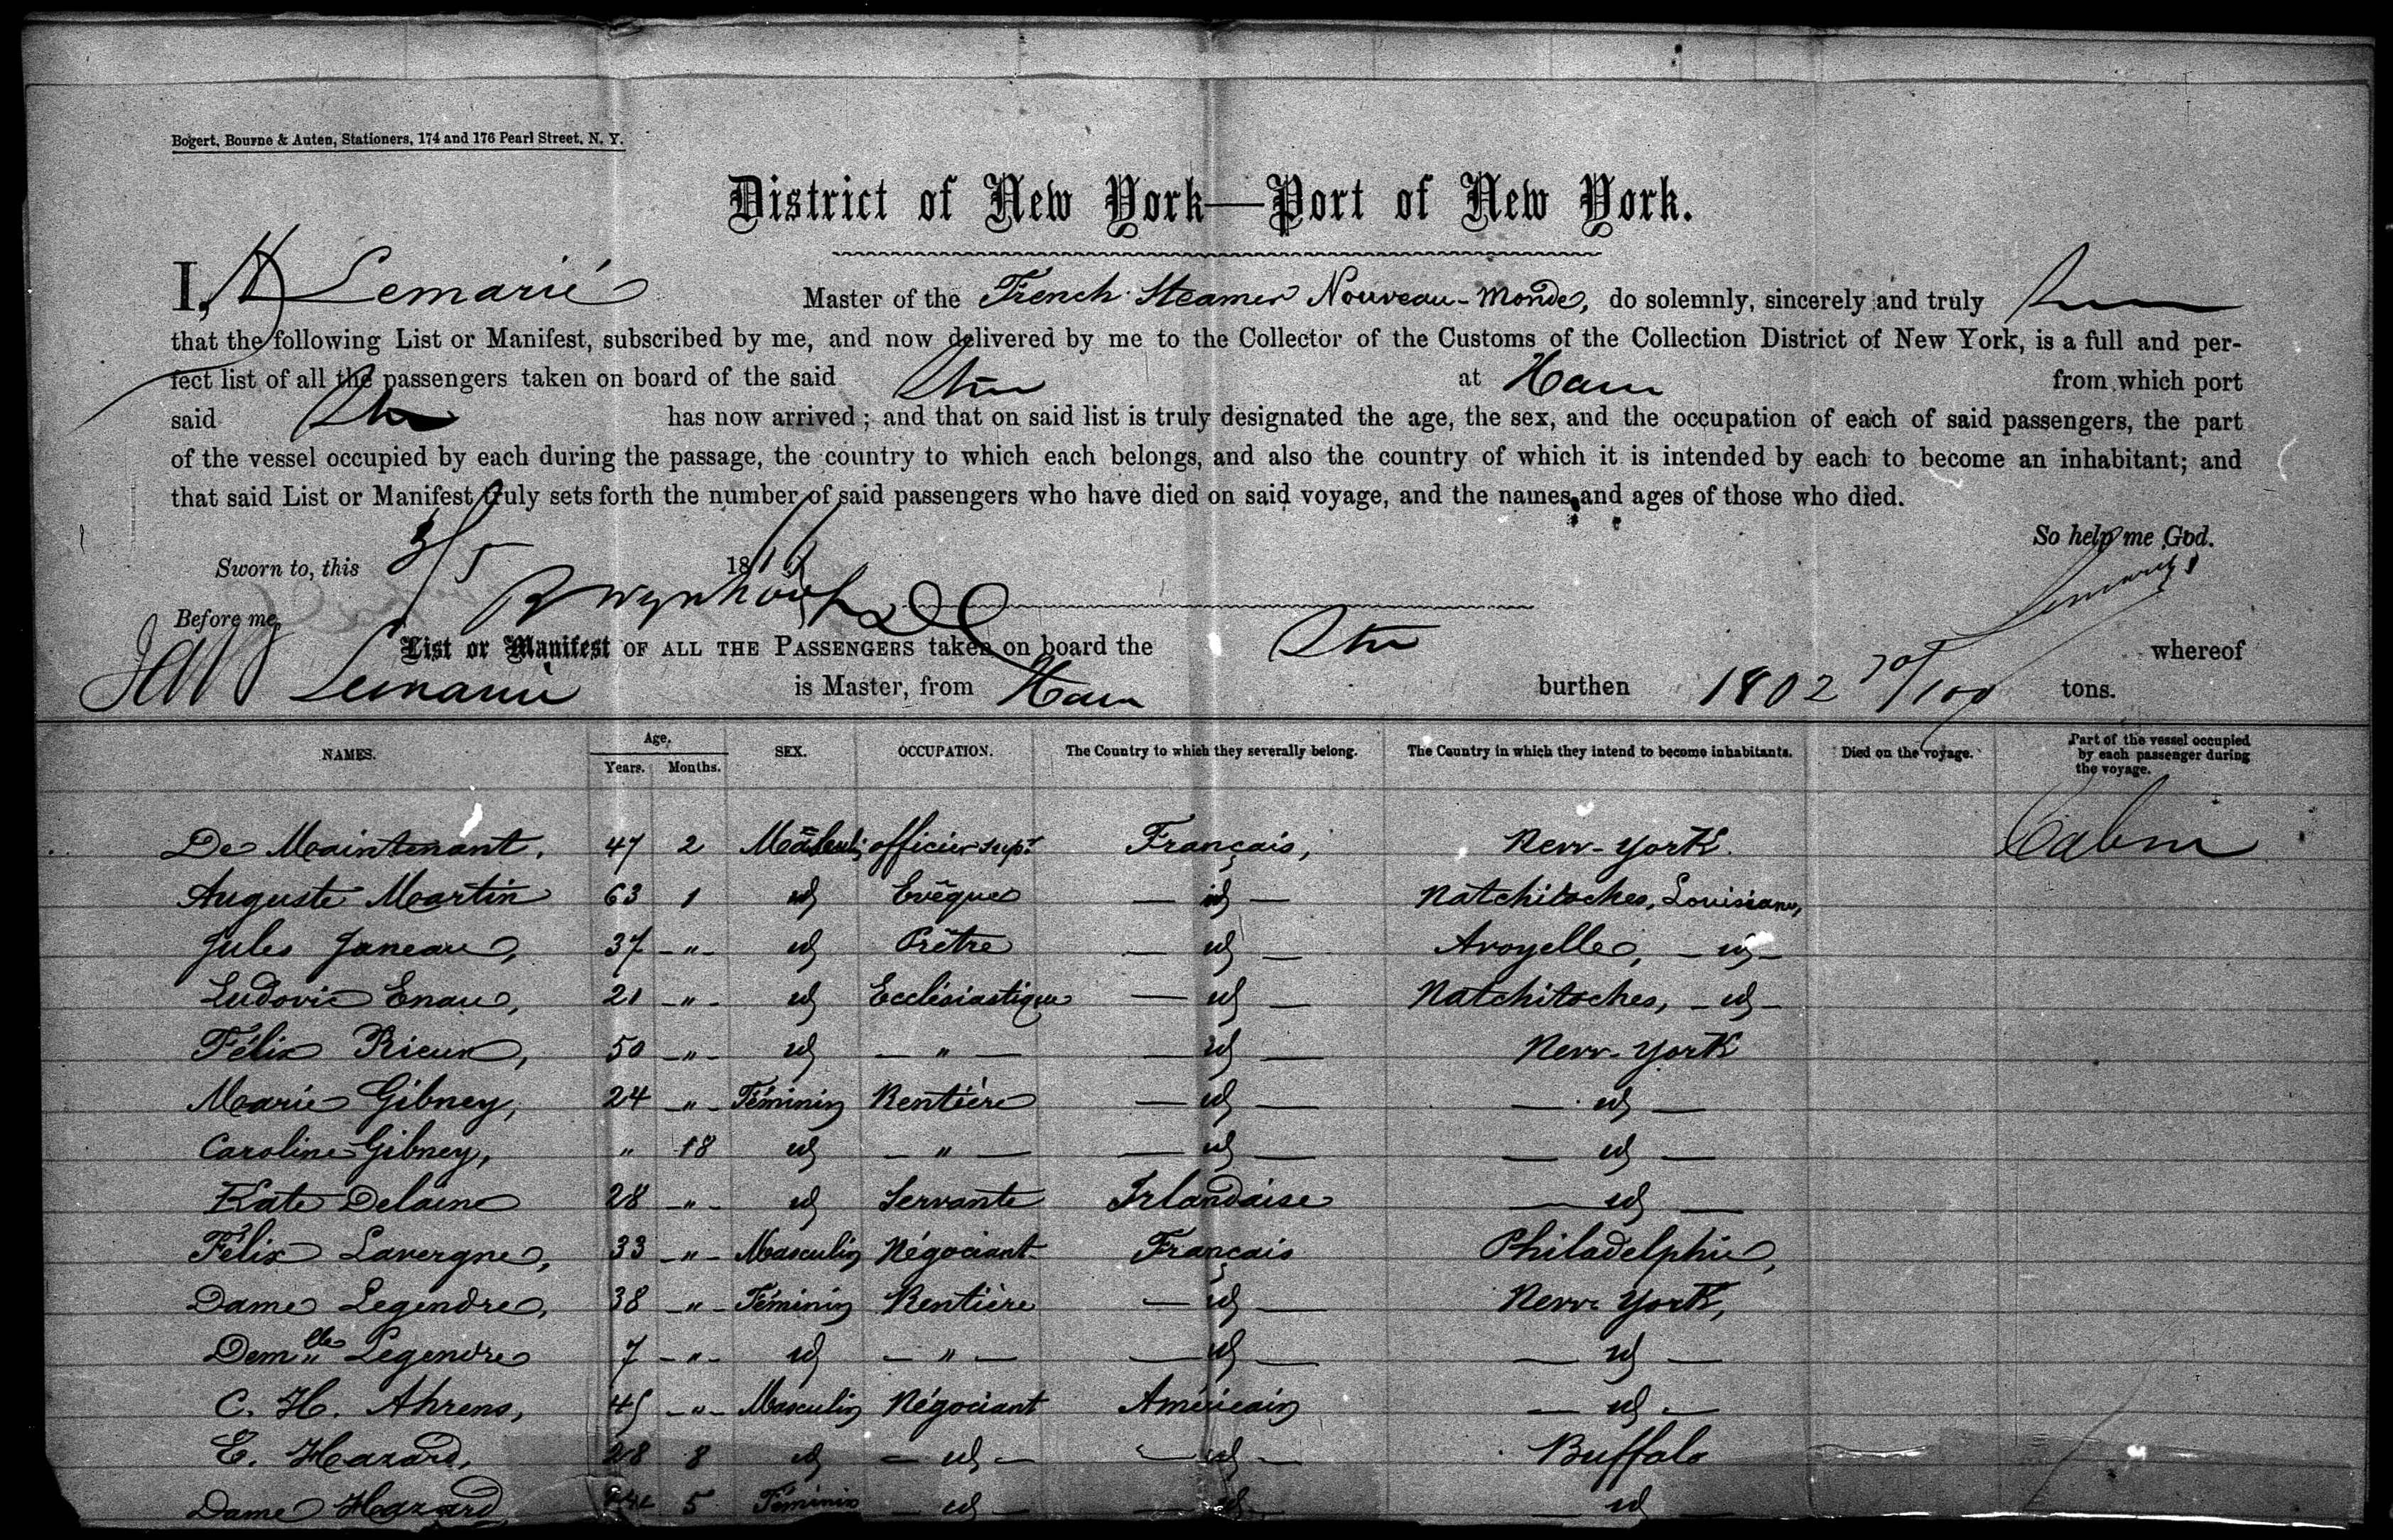 Bogert, Bourne & Auten, Stationers, 174 and 176 Pearl Street, N. Y.
District of New York—Port of New York.
I, A Lemarié Master of the French Steamer Nouveau-Monde, do solemnly, sincerely and truly
that the following List or Manifest, subscribed by me, and now delivered by me to the Collector of the Customs of the Collection District of New York, is a full and per-
fect list of all the passengers taken on board of the said Str at Havre from which port
said Str has now arrived; and that on said list is truly designated the age, the sex, and the occupation of each of said passengers, the part
of the vessel occupied by each during the passage, the country to which each belongs, and also the country of which it is intended by each to become an inhabitant; and
that said List or Manifest truly sets forth the number of said passengers who have died on said voyage, and the names and ages of those who died.
So help me God.
Sworn to, this 3/5 1866
Before me,
List or Manifest OF ALL THE PASSENGERS taken on board the Str whereof
Lemarié is Master, from Havre burthen 1802 70/100 tons.
NAMES. Age. Years. Months. SEX. OCCUPATION. The Country to which they severally belong. The Country in which they intend to become inhabitants. Died on the voyage. Part of the vessel occupied by each passenger during the voyage.
De Maintenant, 47 2 Masculin officier supr Français, New-York. Cabin
Auguste Martin 63 1 id Evêque — id — Natchitoches, Louisiane,
Jules Janeau, 37 -"- id Prêtre — id — Avoyelle, - id -
Ludovic Enau, 21 -"- id Ecclésiastique — id — Natchitoches, - id -
Félix Rieux, 50 -"- id — " — — id — New-York
Marie Gibney, 24 -"- Féminin Rentière — id — — id —
Caroline Gibney, " 18 id — " — — id — — id —
Kate Delaine 28 -"- id Servante Irlandaise — id —
Félix Lavergne, 33 -"- Masculin Négociant Français Philadelphie,
Dame Legendre, 38 -"- Féminin Rentière — id — New-York,
Demlle Legendre 7 -"- id — " — — id — — id —
C. H. Ahrens, 45 -"- Masculin Négociant Américain — id —
E. Hazard, 28 8 id — id — — id — Buffalo
Dame Hazard 5 Féminin — id — — id — id